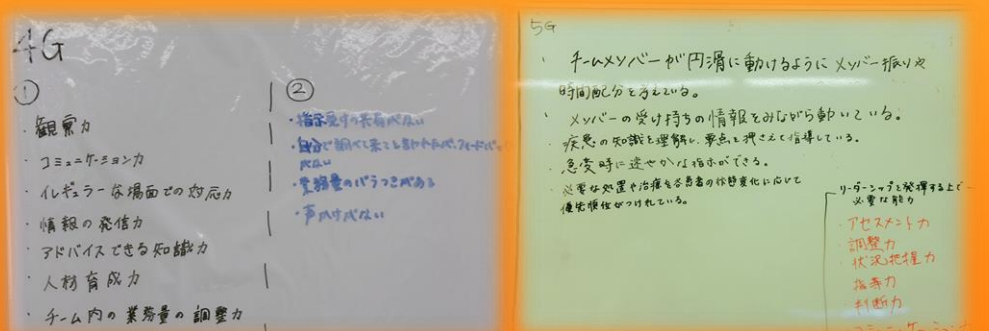 4G
①
・観察力
・コミュニケーション力
・イレギュラーな場面での対応力
・情報の発信力
・アドバイスできる知識力
・人材育成力
・チーム内の業務量の調整力
②
・指示受けの共有がない
・自分で調べて来てと言われたが、フィードバック
がない
・業務量のバラつきがある
・声かけがない
5G
・チームメンバーが円滑に動けるようにメンバー振りや
時間配分を考えている。
・メンバーの受け持ちの情報をみながら動いている。
・疾患の知識を理解し、要点を押さえて指導している。
・急変時に速やかな指示ができる。
・必要な処置や治療を各患者の状態変化に応じて
優先順位がつけれている。
リーダーシップを発揮する上で
必要な能力
・アセスメント力
・調整力
・状況把握力
指導力
・判断力